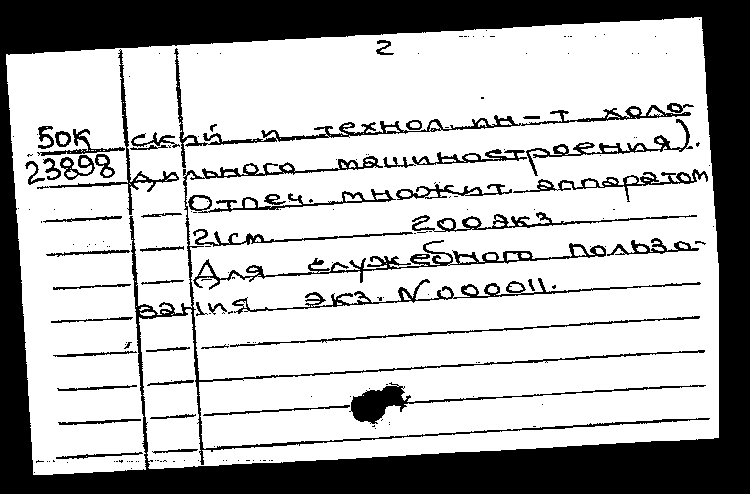 2
50К ский и технол. ин-т холо-
23898 дильного машиностроения).
Отпеч. множит. аппаратом
21см. 200экз.
Для служебного пользо-
вания. экз. N000011.